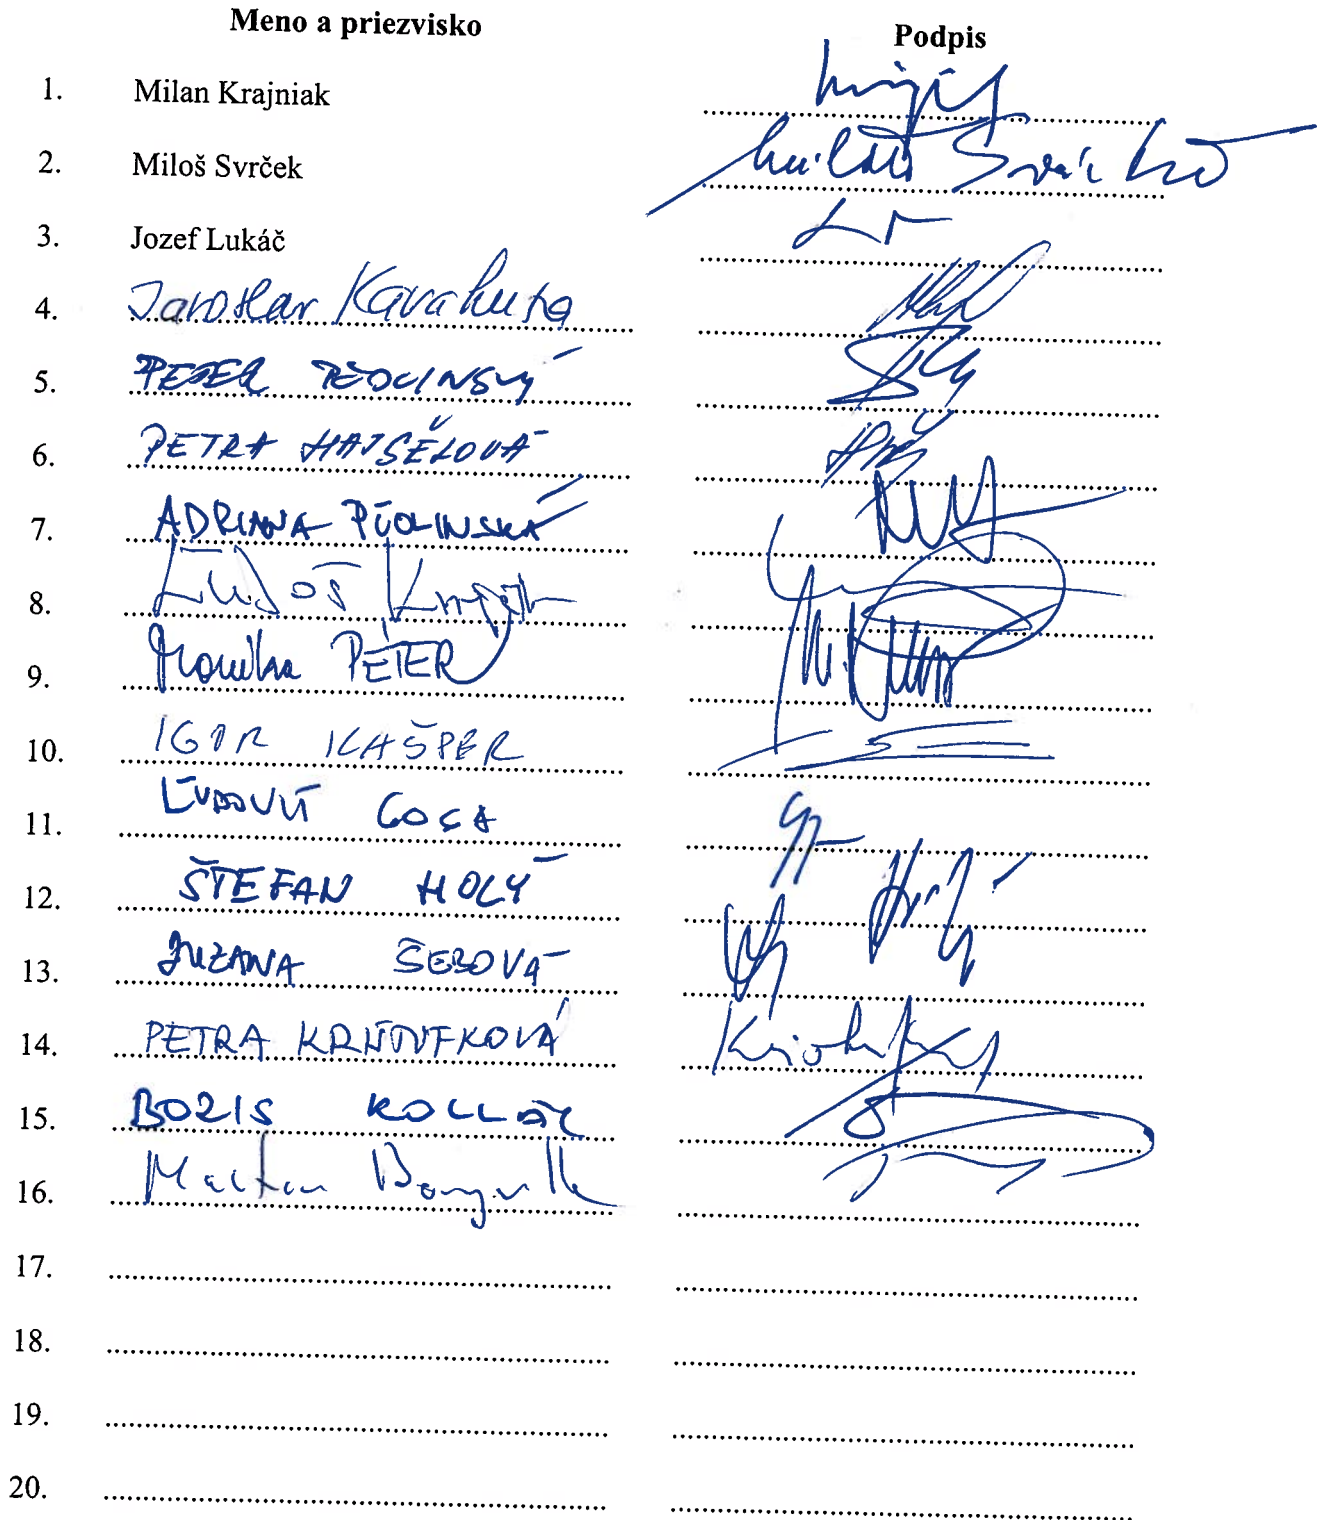 Meno a priezvisko Podpis
1. Milan Krajniak
2. Miloš Svrček Miloš Svrček
3. Jozef Lukáč
4. Jaroslav Karahuta
5. PETER PČOLINSKÝ
6. PETRA HAJŠELOVÁ
7. ADRIANA PČOLINSKÁ
8. Ľuboš Krajčír
9. Monika PÉTER
10. IGOR KAŠPER
11. ĽUDOVÍT GOGA
12. ŠTEFAN HOLÝ
13. ZUZANA ŠEBOVÁ
14. PETRA KRIŠTÚFKOVÁ
15. BORIS KOLLÁR
16. Martin Borguľa
17.
18.
19.
20.